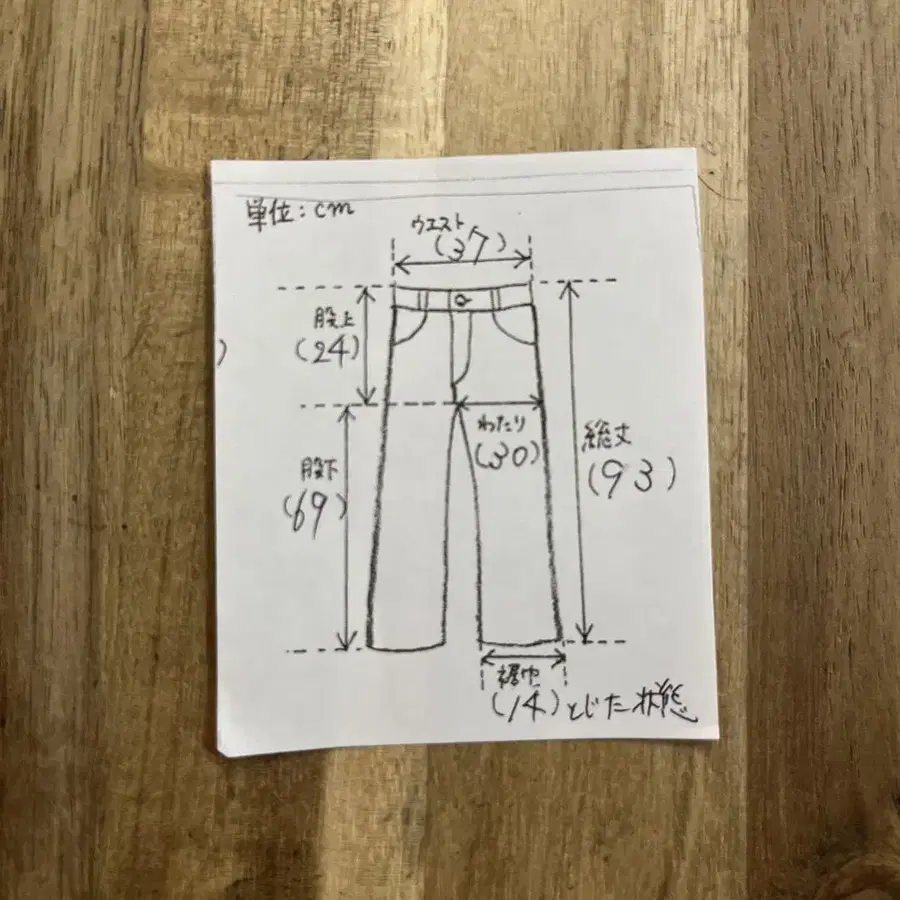 単位：cm
ウエスト
(37)
股上
(24)
)
わたり
(30)
総丈
(93)
股下
(69)
裾巾
(14)とじた状態